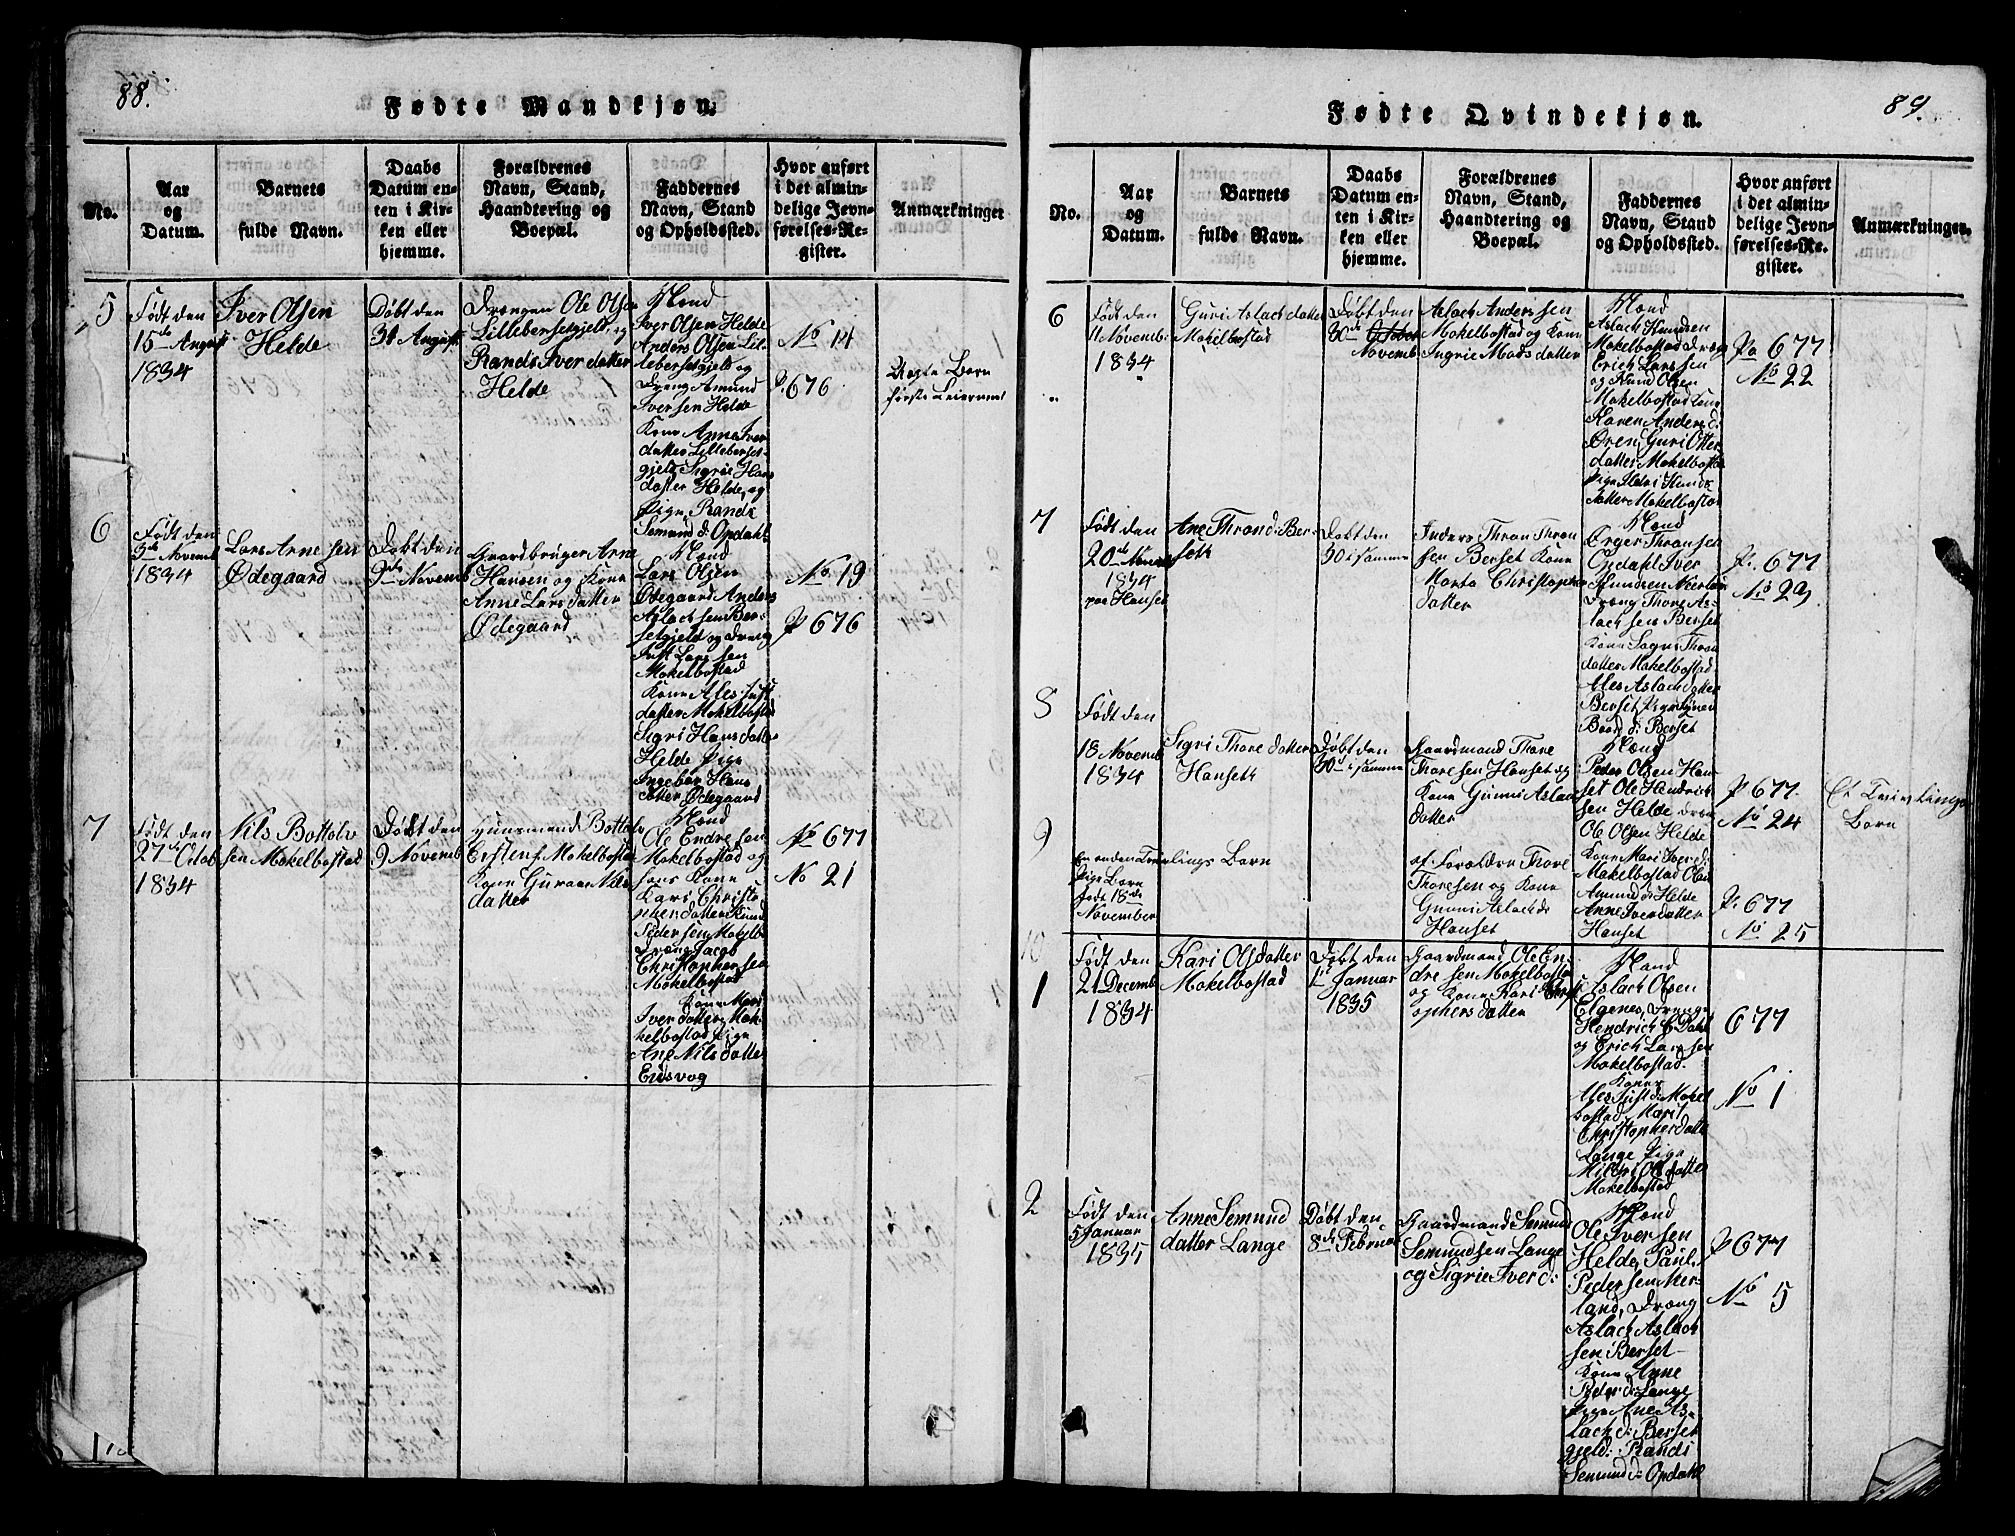 88.
Fødte Mandkjøn.
No.
Aar
og
Datum.
Barnets
fulde Navn.
Daabs
Datum en-
ten i Kir-
ken eller
hjemme.
Forældrenes
Navn, Stand,
Haandtering og
Boepæl.
Faddernes
Navn, Stand
og Opholdssted.
Hvor anført
i det almin-
delige Jevn-
førelses-Re-
gister.
Anmærkninger
5
Født den
15de August
1834
Iver Olsen
Helde
Døbt den
31 August
Drengen Ole Olsen
Lillebersetgjeld, og
Rands Iverdatter
Helde
Mænd
Iver Olsen Helde
Anders Olsen Lil-
lebersetgjeld og
Dreng Amund
Iversen Helde
Kone Anna Iver
datter Lilleberset-
gjeld, Sigrie Hans
datter Helde, og
Pige, Rands
Semund d: Opdahl
No 14
P. 676
Uegte Barn
første Leiermaal
6
Født den
3de Novemb
1834
Lars Arnesen
Ødegaard
Døbt den
9de Novemb
Gaardbruger Arne
Hansen og Kone
Anne Larsdatter
Ødegaard
Mænd
Lars Olsen
Ødegaard Anders
Aslachsen Ber-
setgjeld og Dreng
Just Larssen
Mokelbostad
Kone Ales Just
datter Mokelbostad
Sigri Hansdatter
Helde Pige
Ingebor Hans
datter Ødegaard
No 19
P 676
7
Født den
27de Octob
1834
Nils Bottolv
sen Mokelbostad
Døbt den
9 Novemb
Huusmand Bottolv
Erstens Mokelbostad
Kone Guraae Nils
datter
Mænd
Ole Endresen
Mokelbostad og
hans Kone
Kari Christo
pherdatter Knud
Pedersen Mokelb
Dreng Jacob
Christophersen
Mokelbostad
Kone Mari
Iverdatter Mok-
kelbostad Pige
Ane Nilsdatter
Eidsvog
No 677
No 21
89.
Fødte Qvindekjøn.
No.
Aar
og
Datum.
Barnets
fulde Navn.
Daabs
Datum en-
ten i Kir-
ken eller
hjemme.
Forældrenes
Navn, Stand,
Haandtering og
Boepæl.
Faddernes
Navn, Stand
og Opholdssted.
Hvor anført
i det almin-
delige Jevn-
førelses-Re-
gister.
Anmærkninger.
6
Født den
11 Novemb
1834
Guri Aslachdatter
Mokelbostad
Døbt den
30de Octob
Novemb
Aslach Anderssen
Mokelbostad og Kone
Ingrie Madsdatter
Mænd
Aslach Knudsen
Mokelbostad Dræng
Erich Larssen
og Knud Olsen
Mokelbostad Kone
Karen Anders d:
Øren, Guri Otter
datter Mokelbostad
Pige Sidri Knuds
datter Mokelbostad
Pa 677
No 22
7
Født den
20de Novem
1834
paa Hanset
Ane Thrond: Ber-
seth
Døbt den
30 i samme
Inders Thron Thron
sen Berset Kone
Marta Christopher
datter
Mænd
Ørger Thronsen
Opdahl Iver
Knudsen Meerland
Dræng Thore As-
lachsen Berset
Kone Sagri Thron
datter Mokelbostad
Ales Aslachdatter
Berset Pige Synev
Baard d: Berset
P. 677
No 23
8
Født den
18 Novemb
1834
Sigri Thoredatter
Hanseth
Døbt den
30de i samme
Gaardmand Thore
Thoresen Hanset og
Kone Gunni Aslach
datter
Mænd
Peder Olsen Han-
set Ole Hendrich
sen Helde Dræng
Ole Olsen Helde
Kone Mari Iver d:
Mokelbostad Olau
Amund d: Helde
Anne Iverdatter
Hanset
P 677.
No 24
Et Tvirlings
Børn
9
En anden Tvirlings Barn
Pige Børn
født 18de
November
af Forældre Thore
Thoresen og Kone
Gunni Aslach d:
Hanset
P. 677
No 25
10
1
Født den
21 Decemb
1834
Kari Olsdatter
Mokelbostad
Døbt den
1st Januar
1835
Gaardmand Ole En-
dresen Mokelbostad
og Kone Kari Christ
ophersdatter
Mænd
Aslach Olsen
Elgenes, Drænge
Hendrich E Dahl
og Erich Larssen
Mokelbostad.
Koner
Ales Just d: Mokel
bostad, Marit
Christopherdatter
Lange Pige
Mildri Olsdatter
Mokelbostad
677
No 1
2
Født den
5 Januar
1835
Anne Semund
datter Lange
Døbt den
8de Februar
Gaardmand Semund
Semundsen Lange
og Sigrie Iver d:
Mænd
Ole Iversen
Helde, Paul
Pedersen Mer-
land, Dræng
Aslach Aslach
sen Berset
Kone Anne
Peder d: Lange
Pige Ane As-
lach d: Berset
gjeld: Randi
Semund d: Opdahl
P 677
No 5